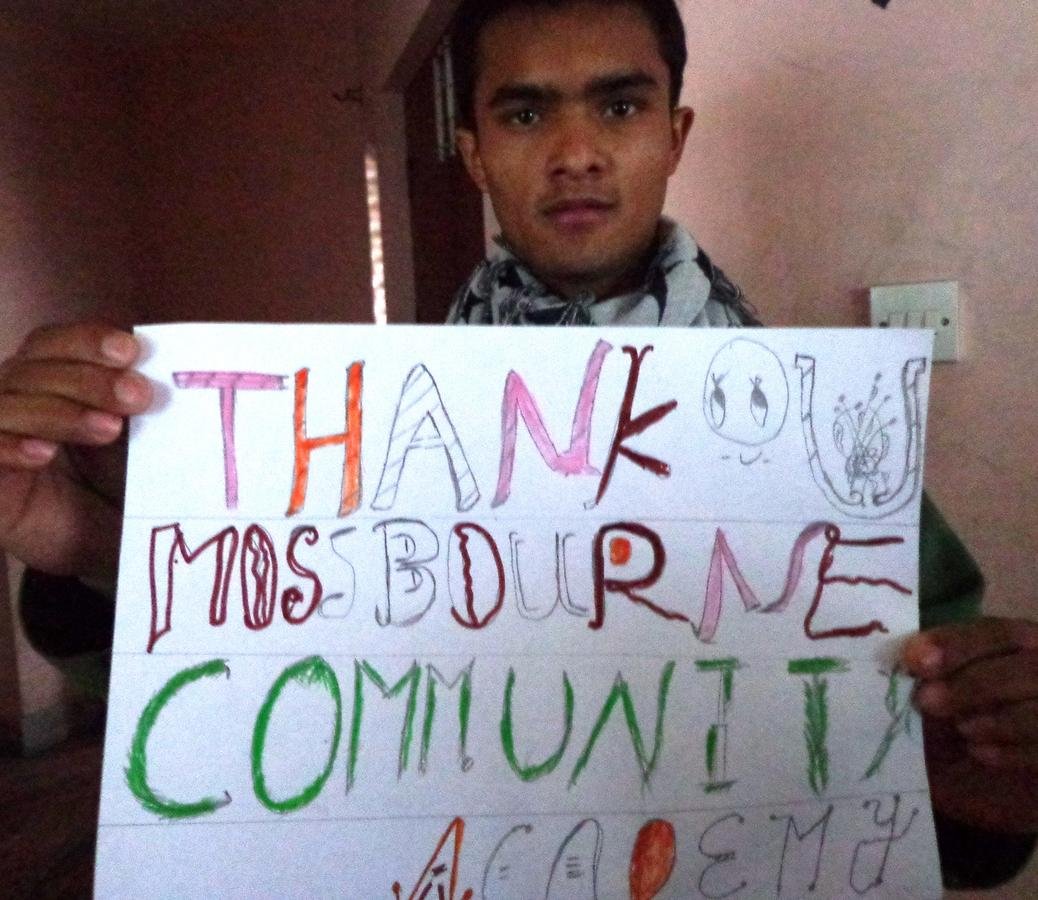 THANK U
MOSSBOURNE
COMMUNITY
ACADEMY